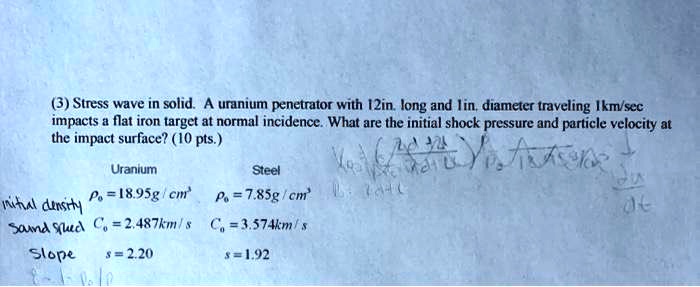 (3) Stress wave in solid. A uranium penetrator with 12in. long and 1in. diameter traveling 1km/sec
impacts a flat iron target at normal incidence. What are the initial shock pressure and particle velocity at
the impact surface? (10 pts.)
Uranium Steel
initial density ρ₀ = 18.95g / cm³ ρ₀ = 7.85g / cm³
sound speed C₀ = 2.487km / s C₀ = 3.574km / s
Slope s = 2.20 s = 1.92